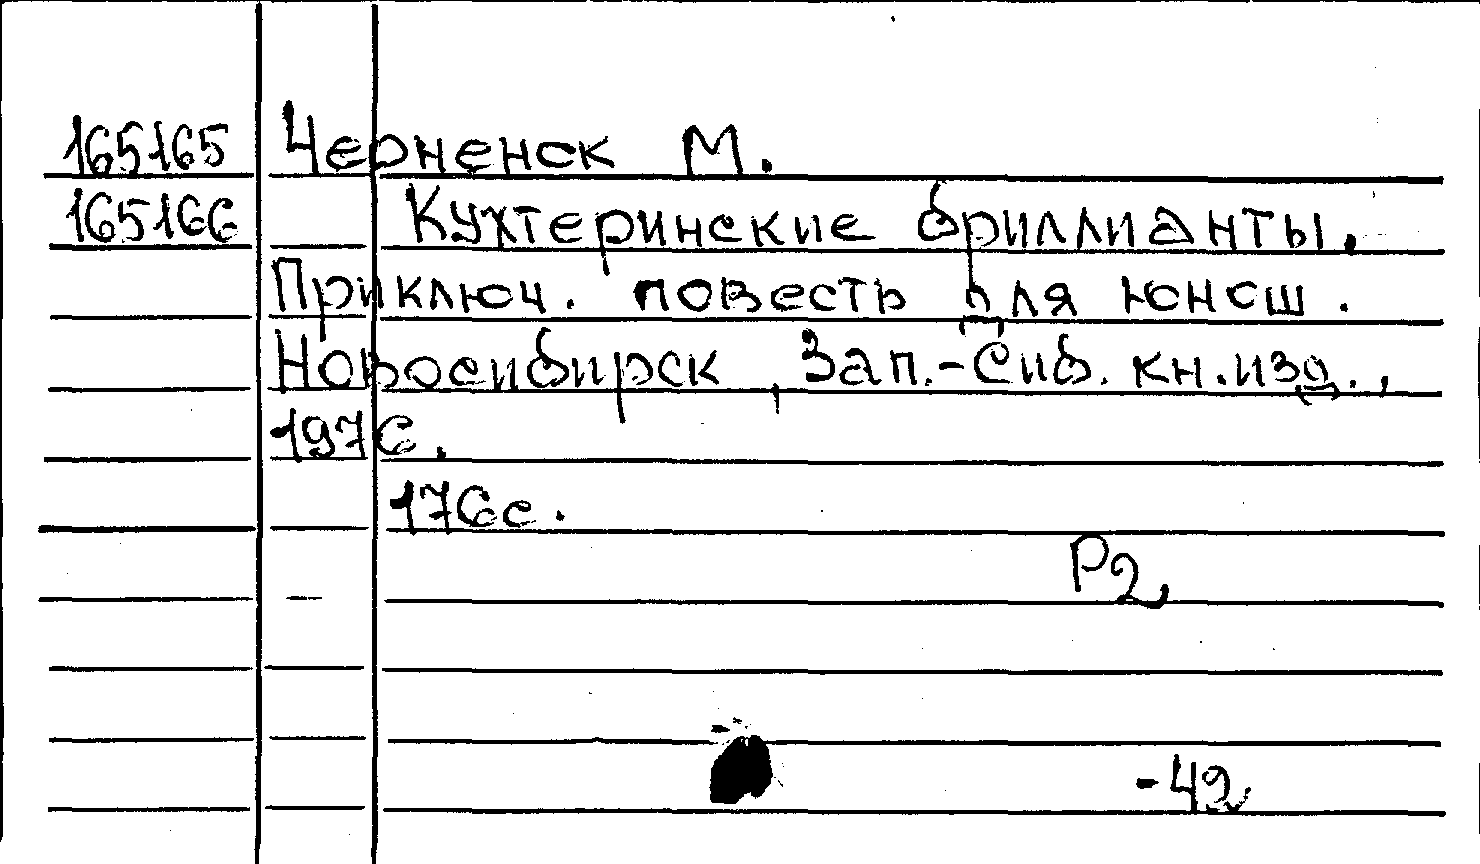 165165 Черненок М.
165166 Кухтеринские бриллианты.
Приключ. повесть для юнош.
Новосибирск, Зап.-Сиб. кн.изд.,
197С.
176с.
Р2
-42